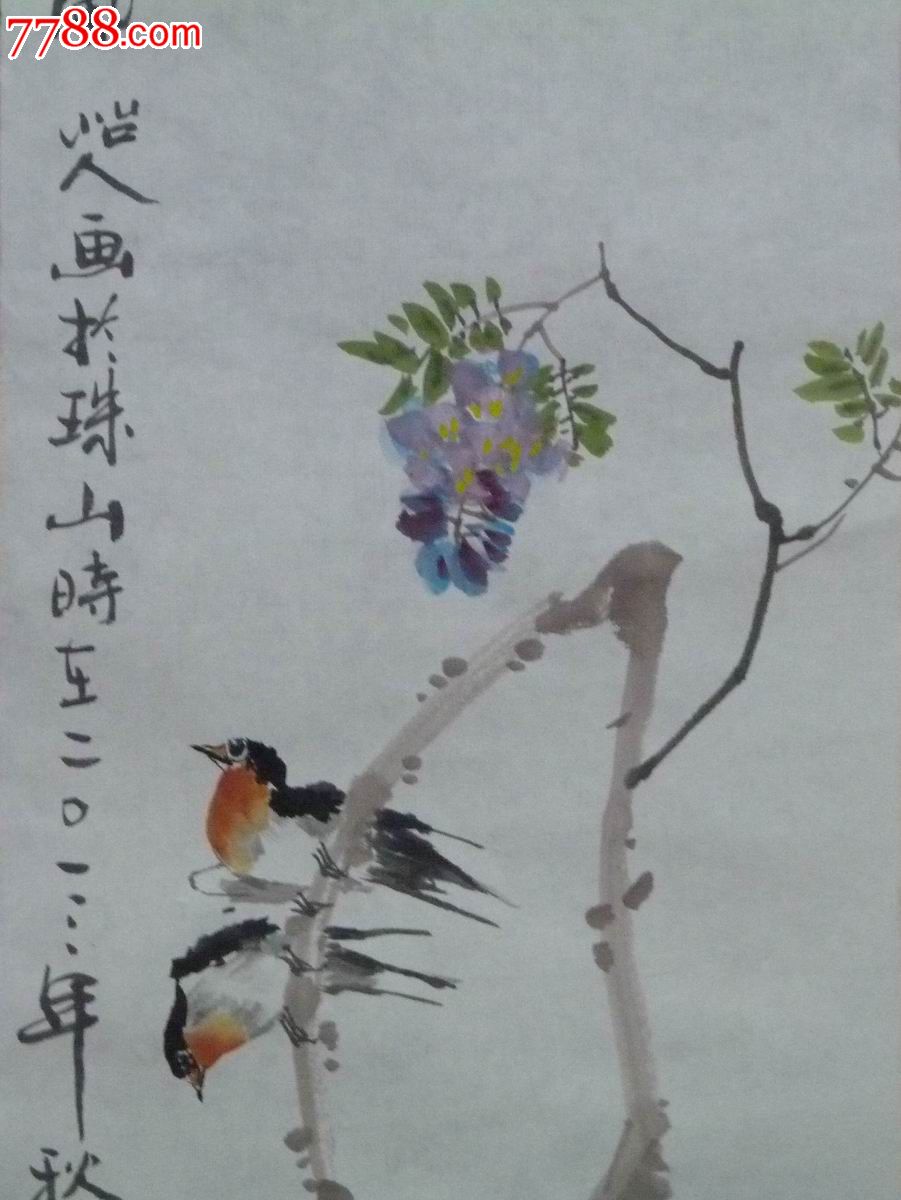 7788.com
画於珠山時在二〇一三年秋